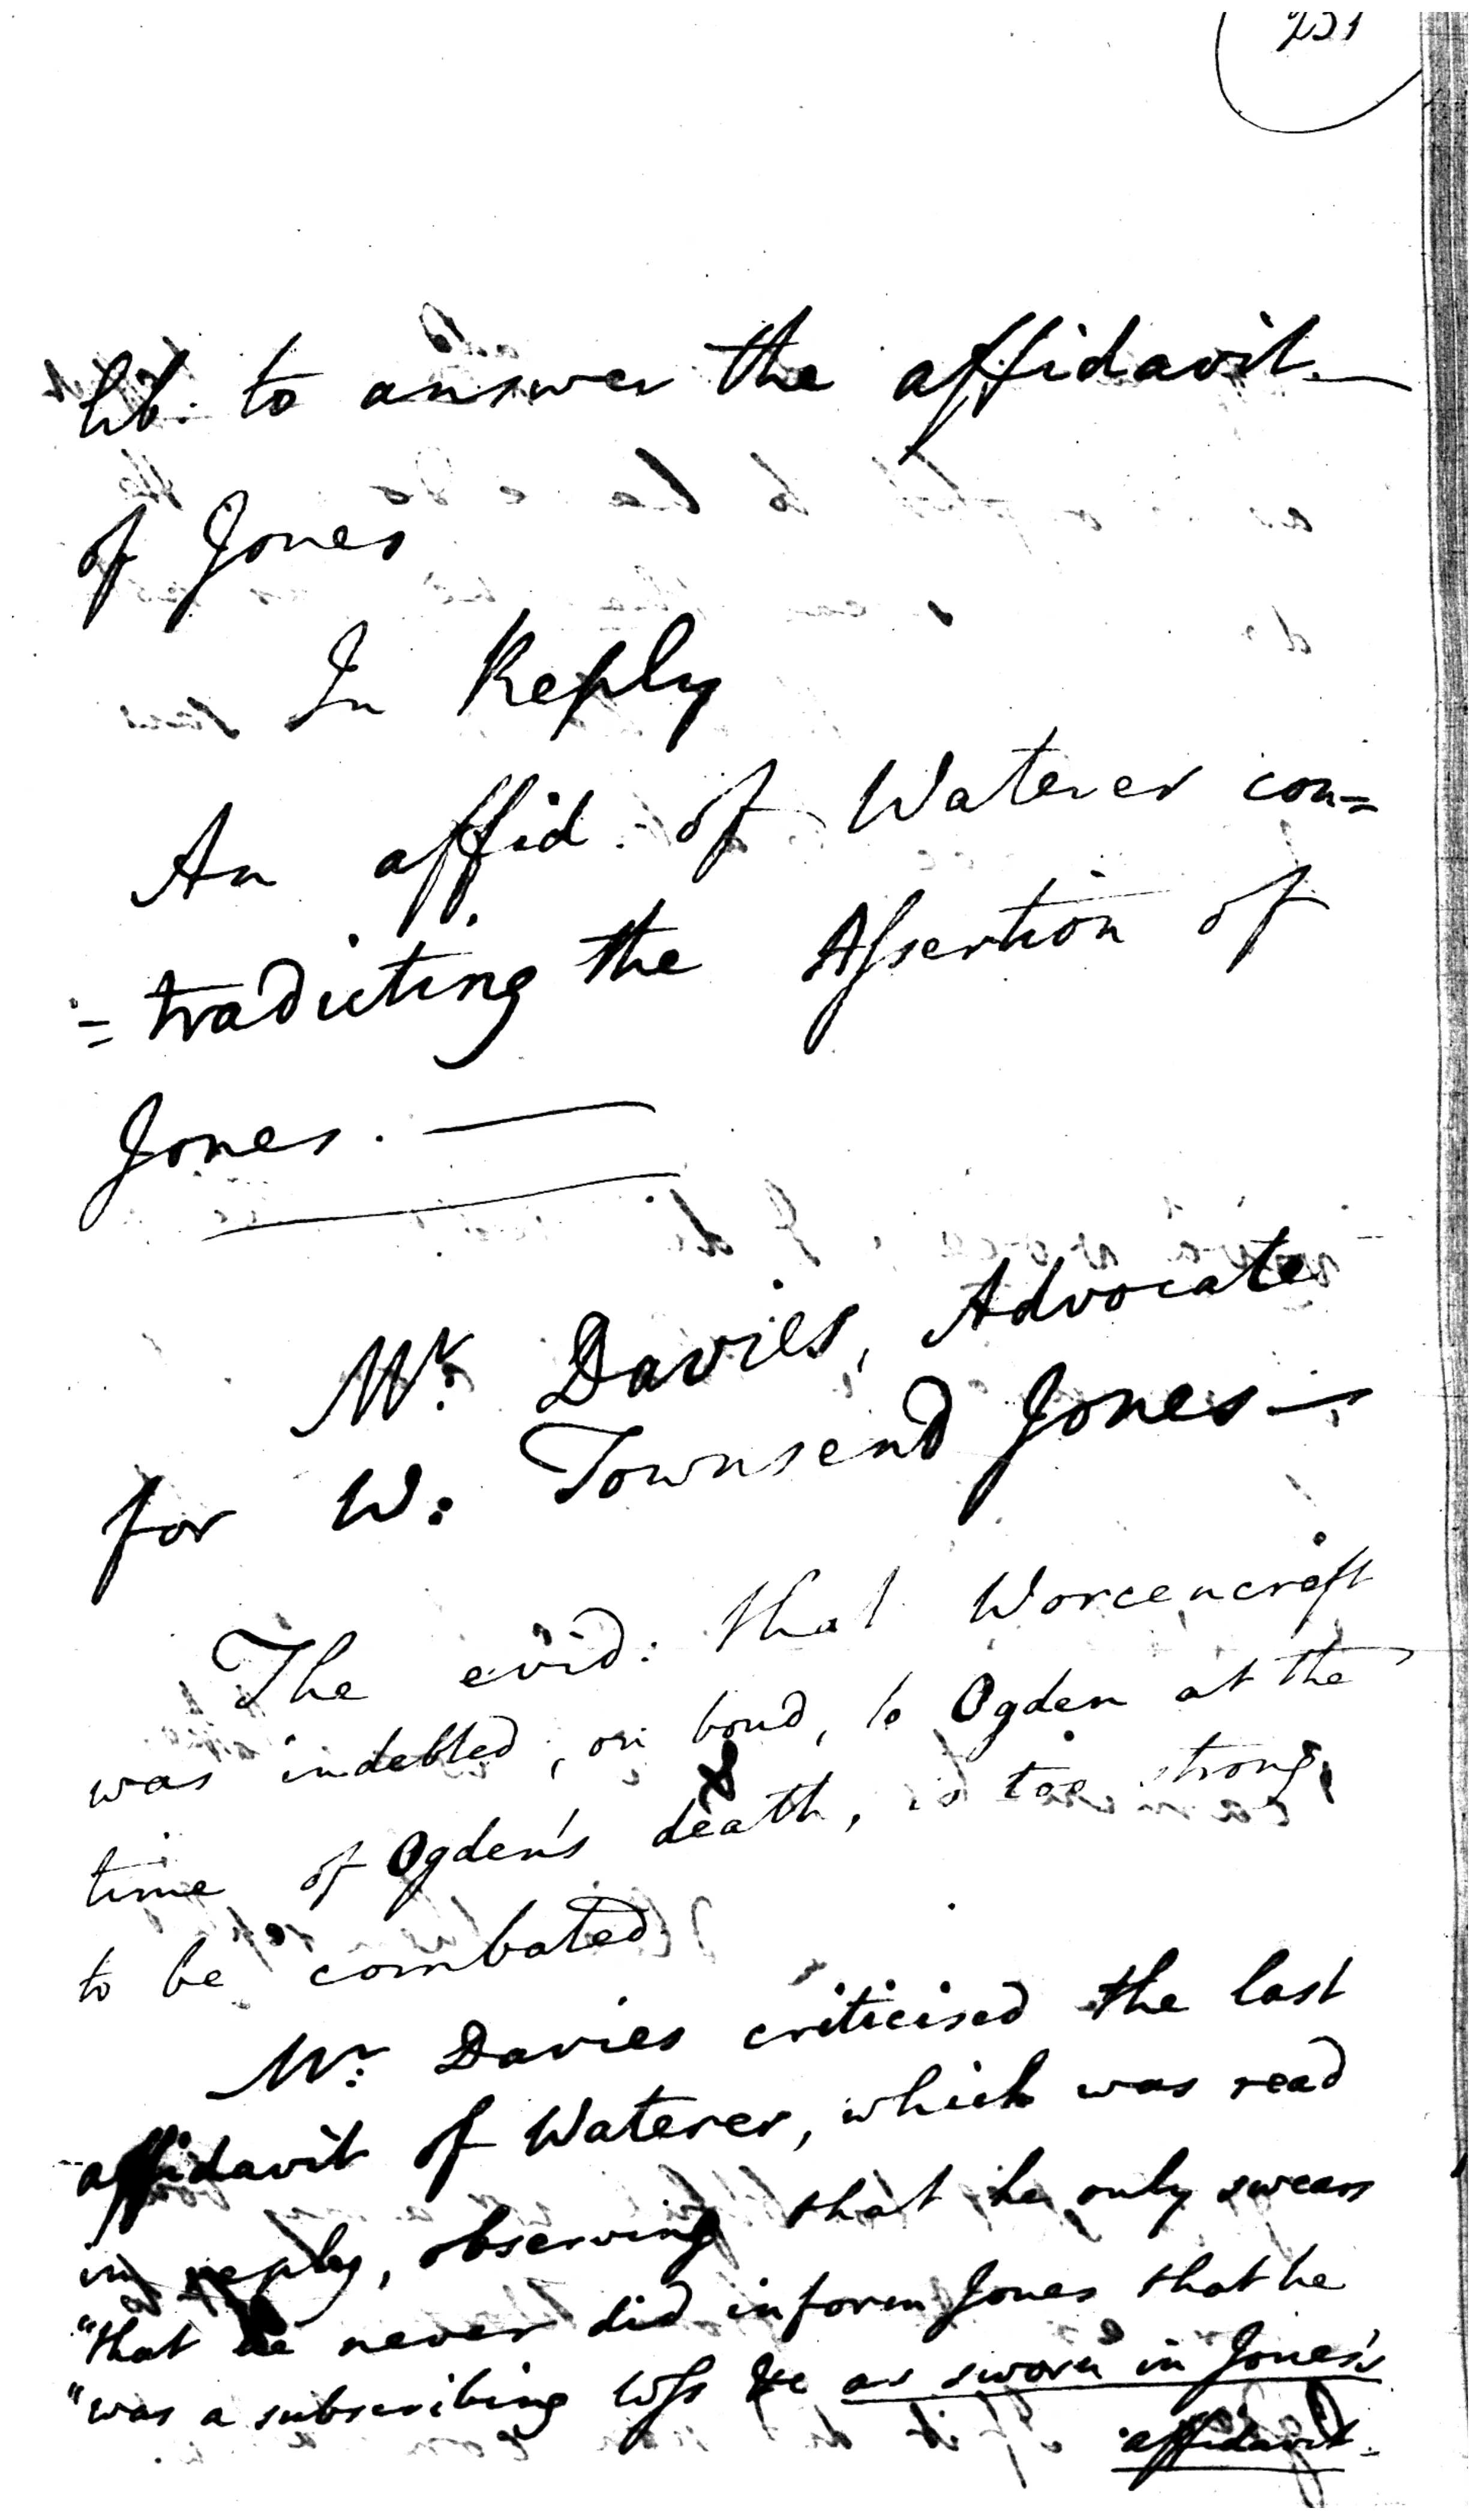 251
lib. to answer the affidavit —
of Jones
In Reply
An affid. of Waterer con=
=tradicting the Assertion of
Jones. —
Mr. Davies, Advocate
for W. Townsend Jones —
The evid: that Worcencroft
was indebted, on bond, to Ogden at the
time of Ogden's death, is too strong
to be combated
Mr. Davies criticised the last
affidavit of Waterer, which was read
in reply, observing that he only swears
"that he never did inform Jones that he
"was a subscribing Wss &c as sworn in Jones's
affidavit.